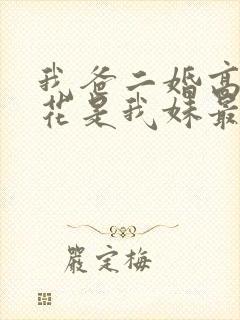 我爸二婚高
花是我妹最
嚴定梅